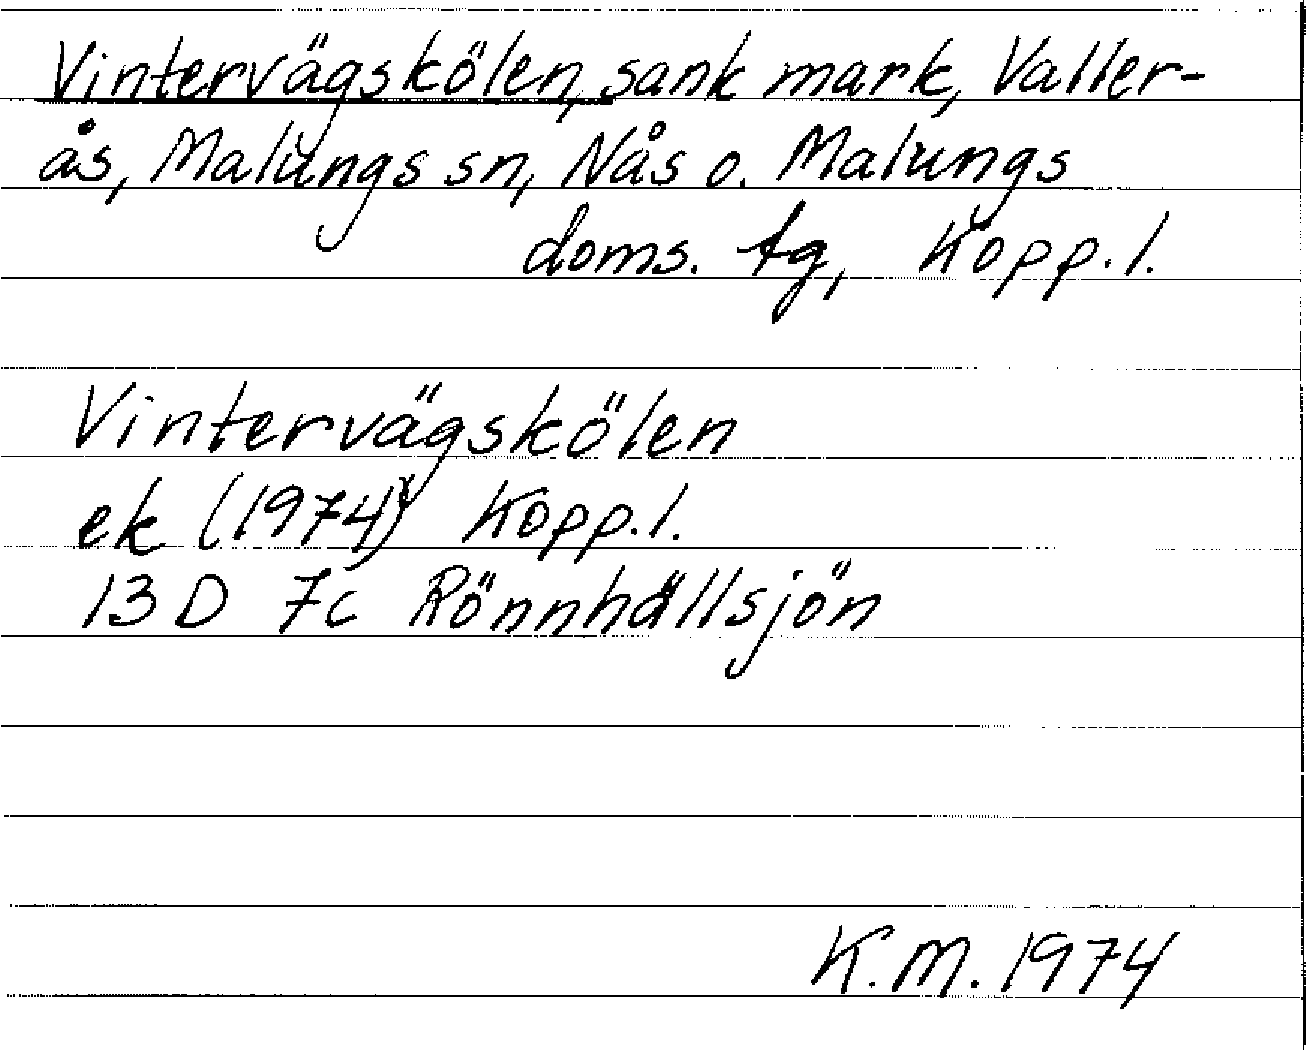 Vintervägskölen, sank mark, Valler-
ås, Malungs sn, Nås o. Malungs
doms. tg, Kopp.l.
Vintervägskölen
ek (1974) Kopp.l.
13D 7c Rönnhällsjön
K.M. 1974